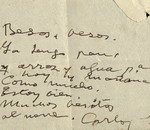 Besos, besos.
Ya tengo pan,
y arroz y agua pª
hoy y mañana
Como mucho.
Estoy bien.
Muchos
al nene. Carlos